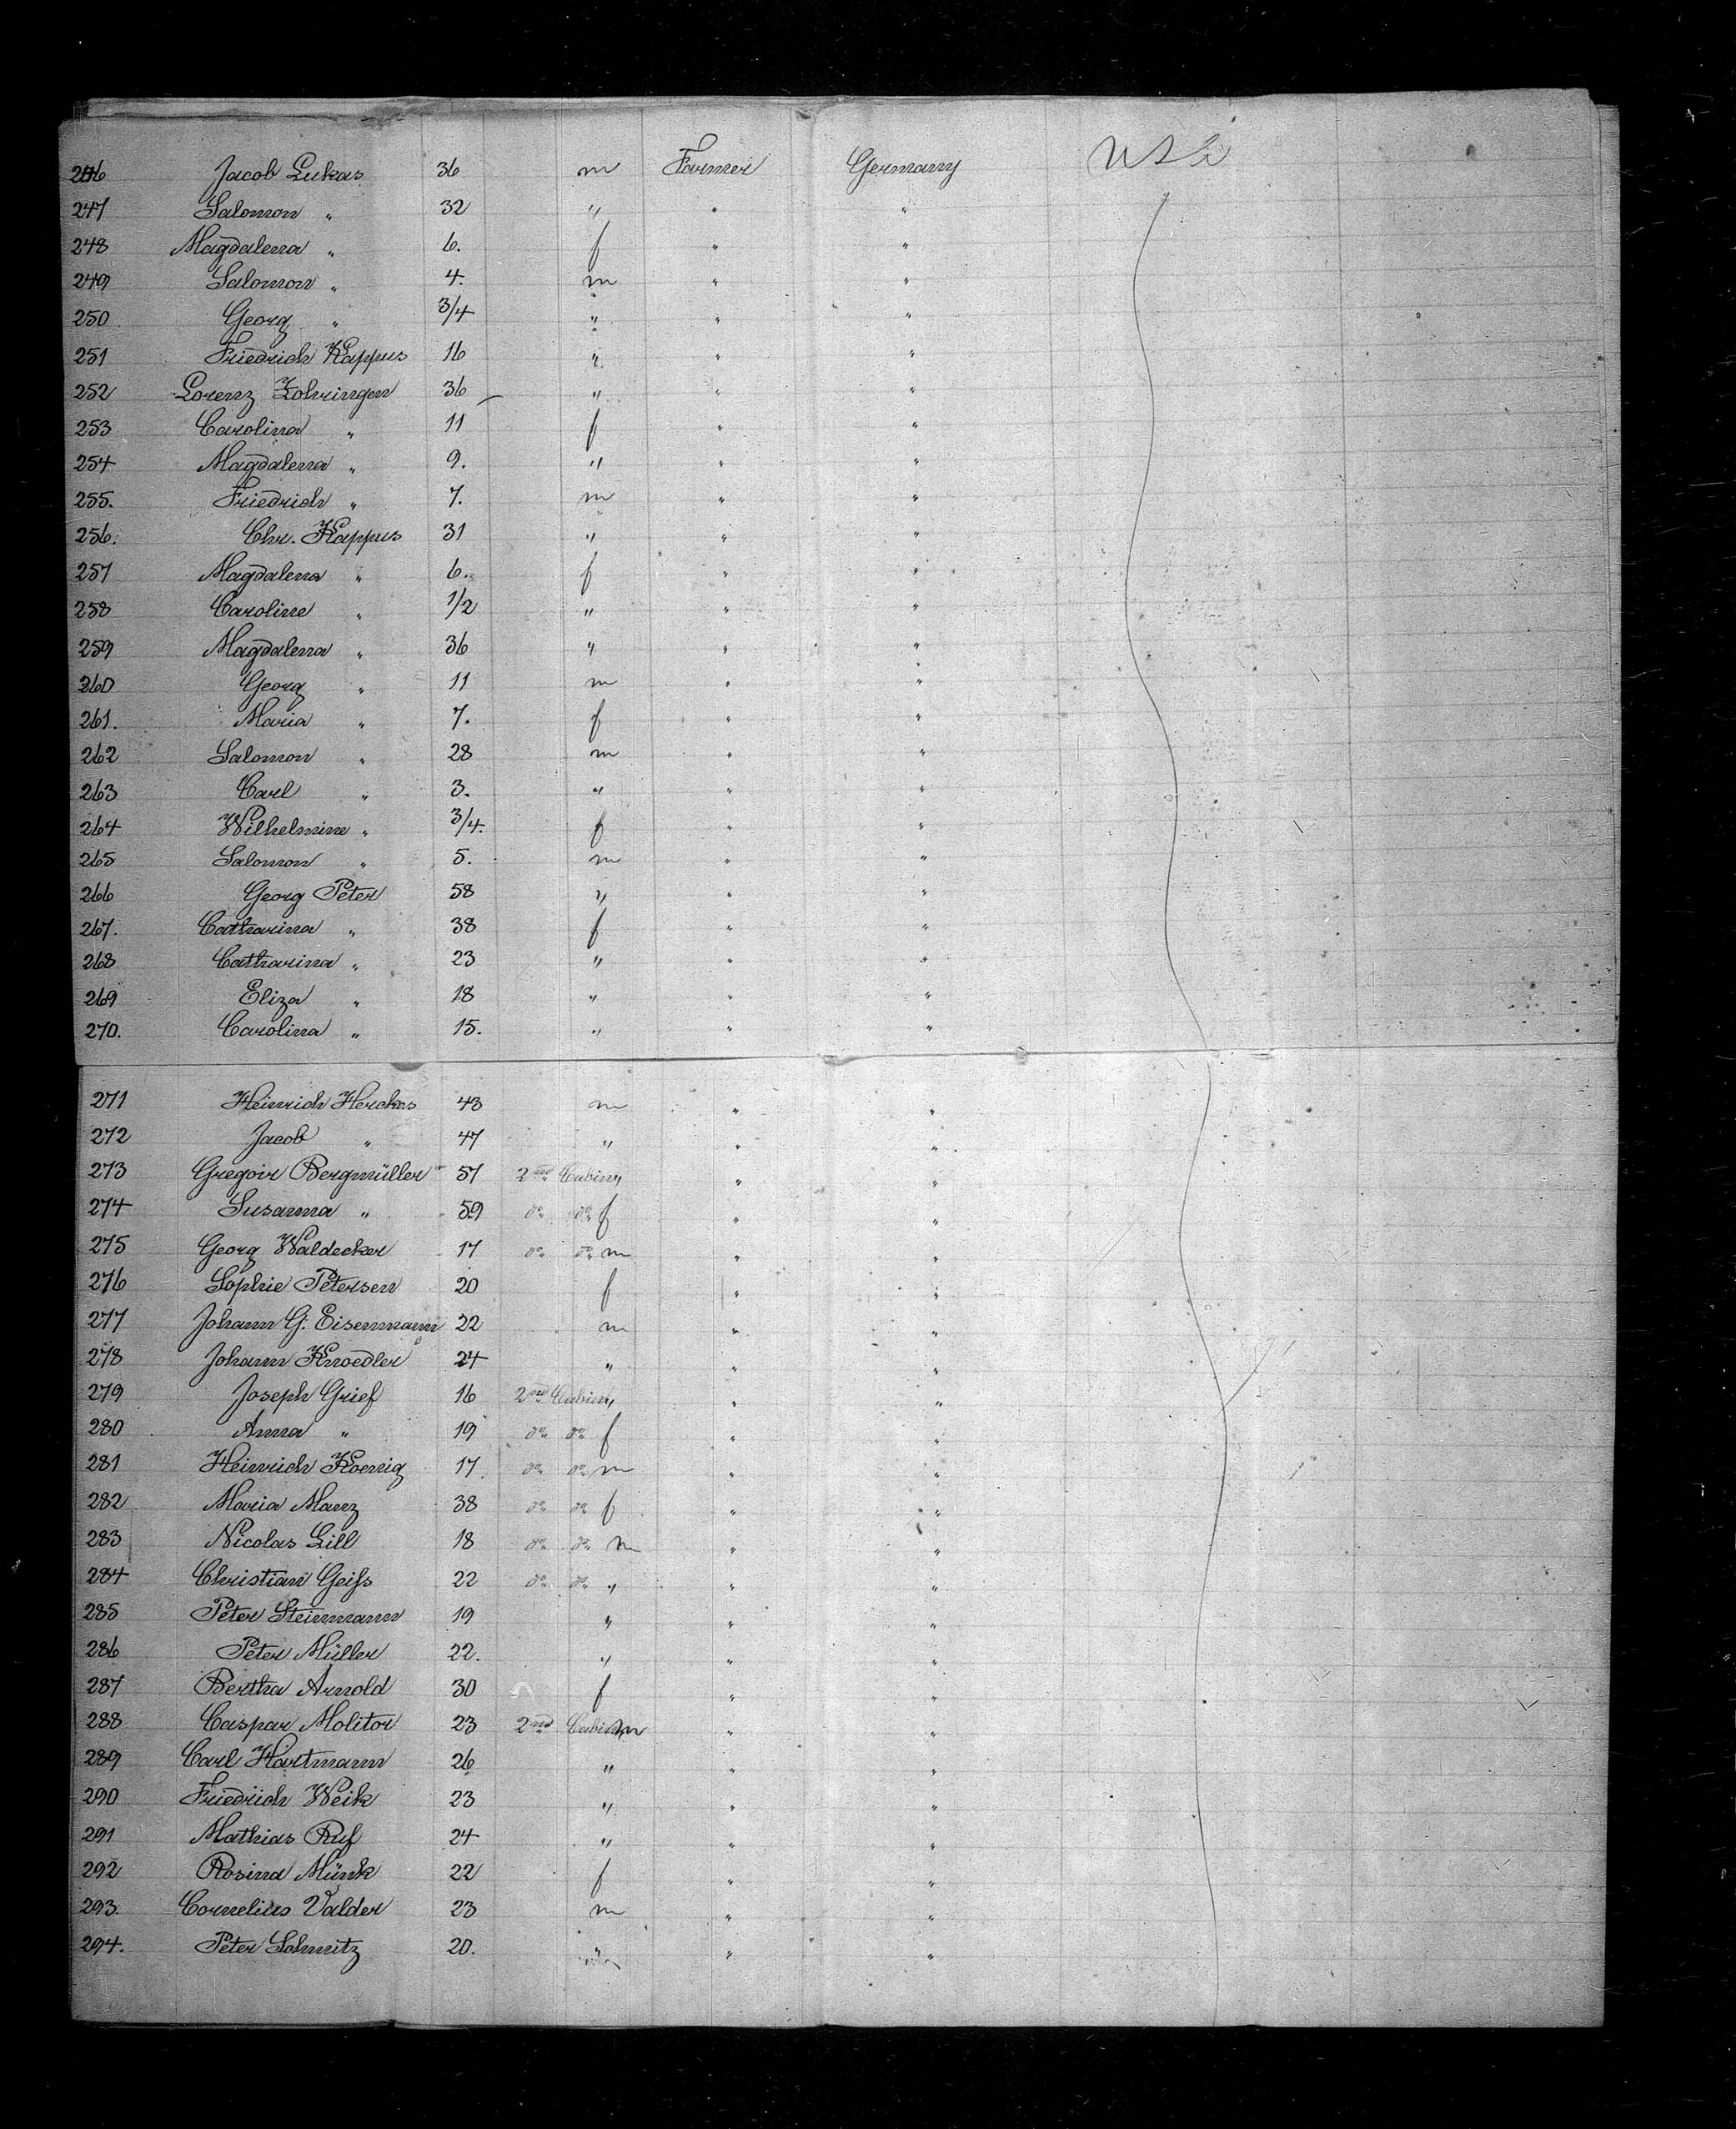 246 Jacob Lukas 36 m Farmer Germany USA
247 Salomon " 32 " " "
248 Magdalena " 6. f " "
249 Salomon " 4. m " "
250 Georg " 3/4 " " "
251 Friedrich Kappus 16 " " "
252 Lorenz Zohringen 36 " " "
253 Carolina " 11 f " "
254 Magdalena " 9. " " "
255. Friedrich " 7. m " "
256. Chr. Kappus 31 " " "
257 Magdalena " 6. f " "
258 Caroline " 1/2 " " "
259 Magdalena " 36 " " "
260 Georg " 11 m " "
261. Maria " 7. f " "
262 Salomon " 28 m " "
263 Carl " 3. " " "
264 Wilhelmine " 3/4. f " "
265 Salomon " 5. m " "
266 Georg Peter 58 " " "
267. Catharina " 38 f " "
268 Catharina " 23 " " "
269 Eliza " 18 " " "
270. Carolina " 15. " " "
271 Heinrich Herckes 43 m " "
272 Jacob " 47 " " "
273 Gregoir Bergmüller 57 2nd Cabin " " "
274 Susanna " 59 do do f " "
275 Georg Waldecker 17 do do m " "
276 Sophie Petersen 20 f " "
277 Johann G. Eisenmann 22 m " "
278 Johann Knoedler 24 " " "
279 Joseph Grief 16 2nd Cabin " " "
280 Anna " 19 do do f " "
281 Heinrich Koenig 17 do do m " "
282 Maria Manz 38 do do f " "
283 Nicolas Lill 18 do do m " "
284 Christian Geiſs 22 do do " " "
285 Peter Steinmann 19 " " "
286 Peter Müller 22. " " "
287 Bertha Arnold 30 f " "
288 Caspar Molitor 23 2nd Cabin m " "
289 Carl Hartmann 26 " " "
290 Friedrich Weik 23 " " "
291 Mathias Ruf 24 " " "
292 Rosina Münk 22 f " "
293. Cornelius Valder 23 m " "
294. Peter Schmitz 20. " " "